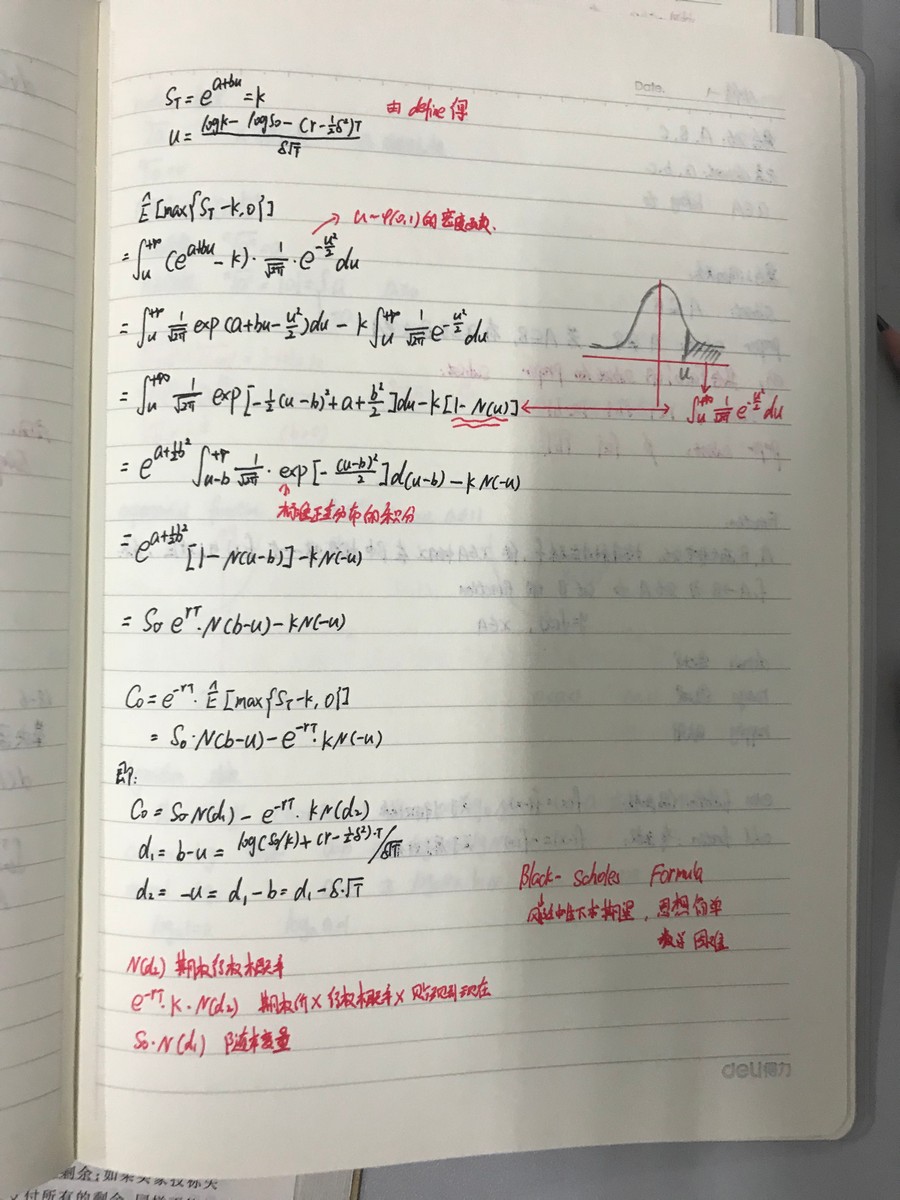 Date.
S_T = e^{a+bu} = k
由 define 得
u = \frac{log k - log S_0 - (r - \frac{1}{2}δ^2)T}{δ\sqrt{T}}
Ê[max{S_T - k, 0}]
→ u~φ(0,1) 的密度函数.
= ∫_u^{+∞} (e^{a+bu} - k) · \frac{1}{\sqrt{2π}} · e^{-\frac{u^2}{2}} du
= ∫_u^{+∞} \frac{1}{\sqrt{2π}} exp(a+bu-\frac{u^2}{2})du - k ∫_u^{+∞} \frac{1}{\sqrt{2π}} e^{-\frac{u^2}{2}} du
u
= ∫_u^{+∞} \frac{1}{\sqrt{2π}} exp[-\frac{1}{2}(u-b)^2 + a + \frac{b^2}{2}]du - k[1-N(u)]
∫_u^{+∞} \frac{1}{\sqrt{2π}} e^{-\frac{u^2}{2}} du
= e^{a+\frac{1}{2}b^2} ∫_{u-b}^{+∞} \frac{1}{\sqrt{2π}} · exp[-\frac{(u-b)^2}{2}]d(u-b) - kN(-u)
标准正态分布的积分
= e^{a+\frac{1}{2}b^2} [1-N(u-b)] - kN(-u)
= S_0 e^{rT} · N(b-u) - kN(-u)
C_0 = e^{-rT} · Ê[max{S_T - k, 0}]
= S_0 · N(b-u) - e^{-rT} · kN(-u)
即:
C_0 = S_0 N(d_1) - e^{-rT} · kN(d_2)
d_1 = b-u = log(S_0/k) + (r - \frac{1}{2}δ^2)·T / δ\sqrt{T}
d_2 = -u = d_1 - b = d_1 - δ·\sqrt{T}
Black-Scholes Formula
风险中性下求期望, 思想简单
数学困难
N(d_2) 期权行权概率
e^{-rT} · k · N(d_2) 期权价×行权概率×贴现到现在
S_0 · N(d_1) 随本变量
deli得力
剩余;如果买家权标失
付所有的剩余